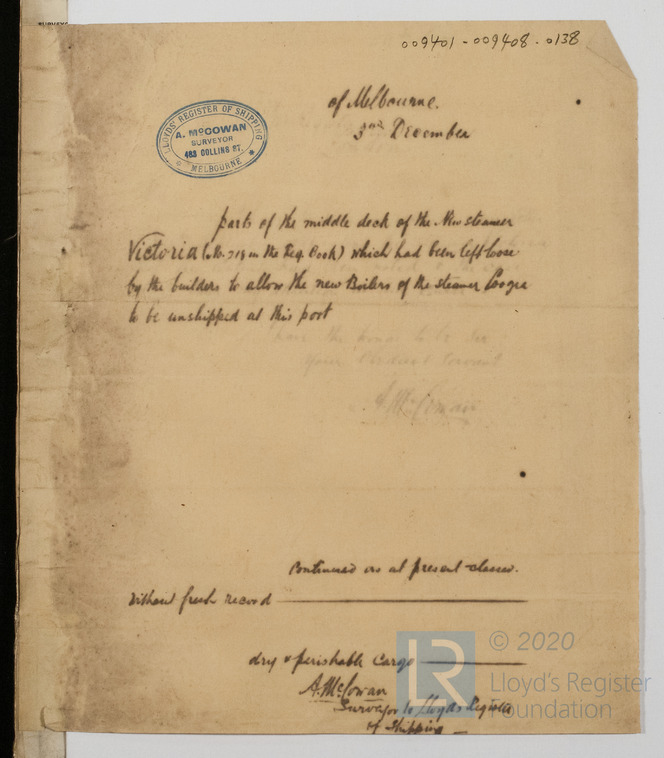 009401-009408-0138
of Melbourne.
3rd December
LLOYDS' REGISTER OF SHIPPING
A. McCOWAN
SURVEYOR
483 COLLINS ST.
MELBOURNE
parts of the middle deck of the New steamer
Victoria (No. 718 in the Reg. Book) which had been left loose
by the builders to allow the new Boilers of the steamer Coogee
to be unshipped at this port
have the honor to be Sir
your Obedient Servant
A. McCowan
Continued as at present classed.
Without fresh record
dry & perishable Cargo
A. McCowan
Surveyor to Lloyds Register
of Shipping
© 2020
LR
Lloyd's Register
Foundation